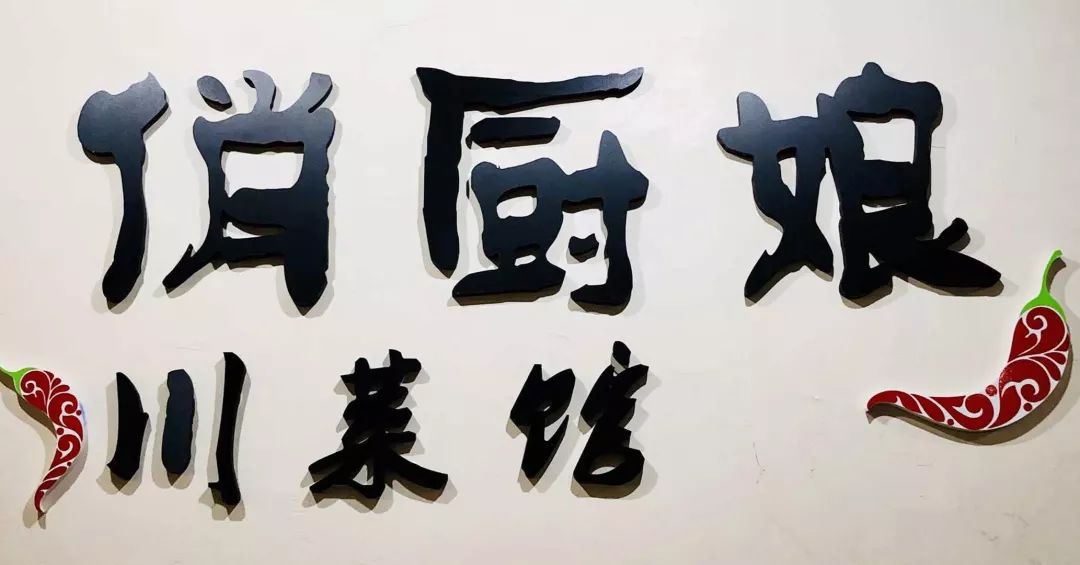 俏厨娘
川菜馆